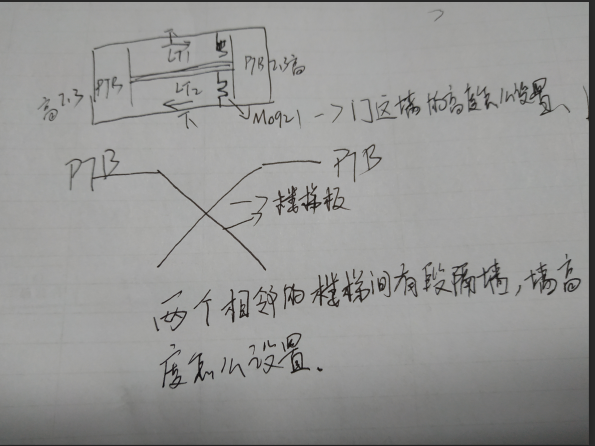 下
LT1
PTB
PTB 2.3高
高2.3
LT2
下
M0921 → 门这墙的高度怎么设置、
PTB
PTB
楼梯板
两个相邻的楼梯间有段隔墙,墙高
度怎么设置.